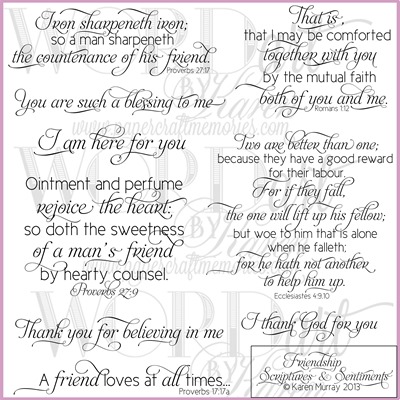 Iron sharpeneth iron;
so a man sharpeneth
the countenance of his friend.
Proverbs 27:17
You are such a blessing to me
I am here for you
Ointment and perfume
rejoice the heart:
so doth the sweetness
of a man's friend
by hearty counsel.
Proverbs 27:9
Thank you for believing in me
A friend loves at all times...
Proverbs 17:17a
That is,
that I may be comforted
together with you
by the mutual faith
both of you and me.
Romans 1:12
Two are better than one;
because they have a good reward
for their labour.
For if they fall,
the one will lift up his fellow;
but woe to him that is alone
when he falleth;
for he hath not another
to help him up.
Ecclesiastes 4:9,10
I thank God for you
Friendship
Scriptures & Sentiments
© Karen Murray 2013
www.papercraftmemories.com